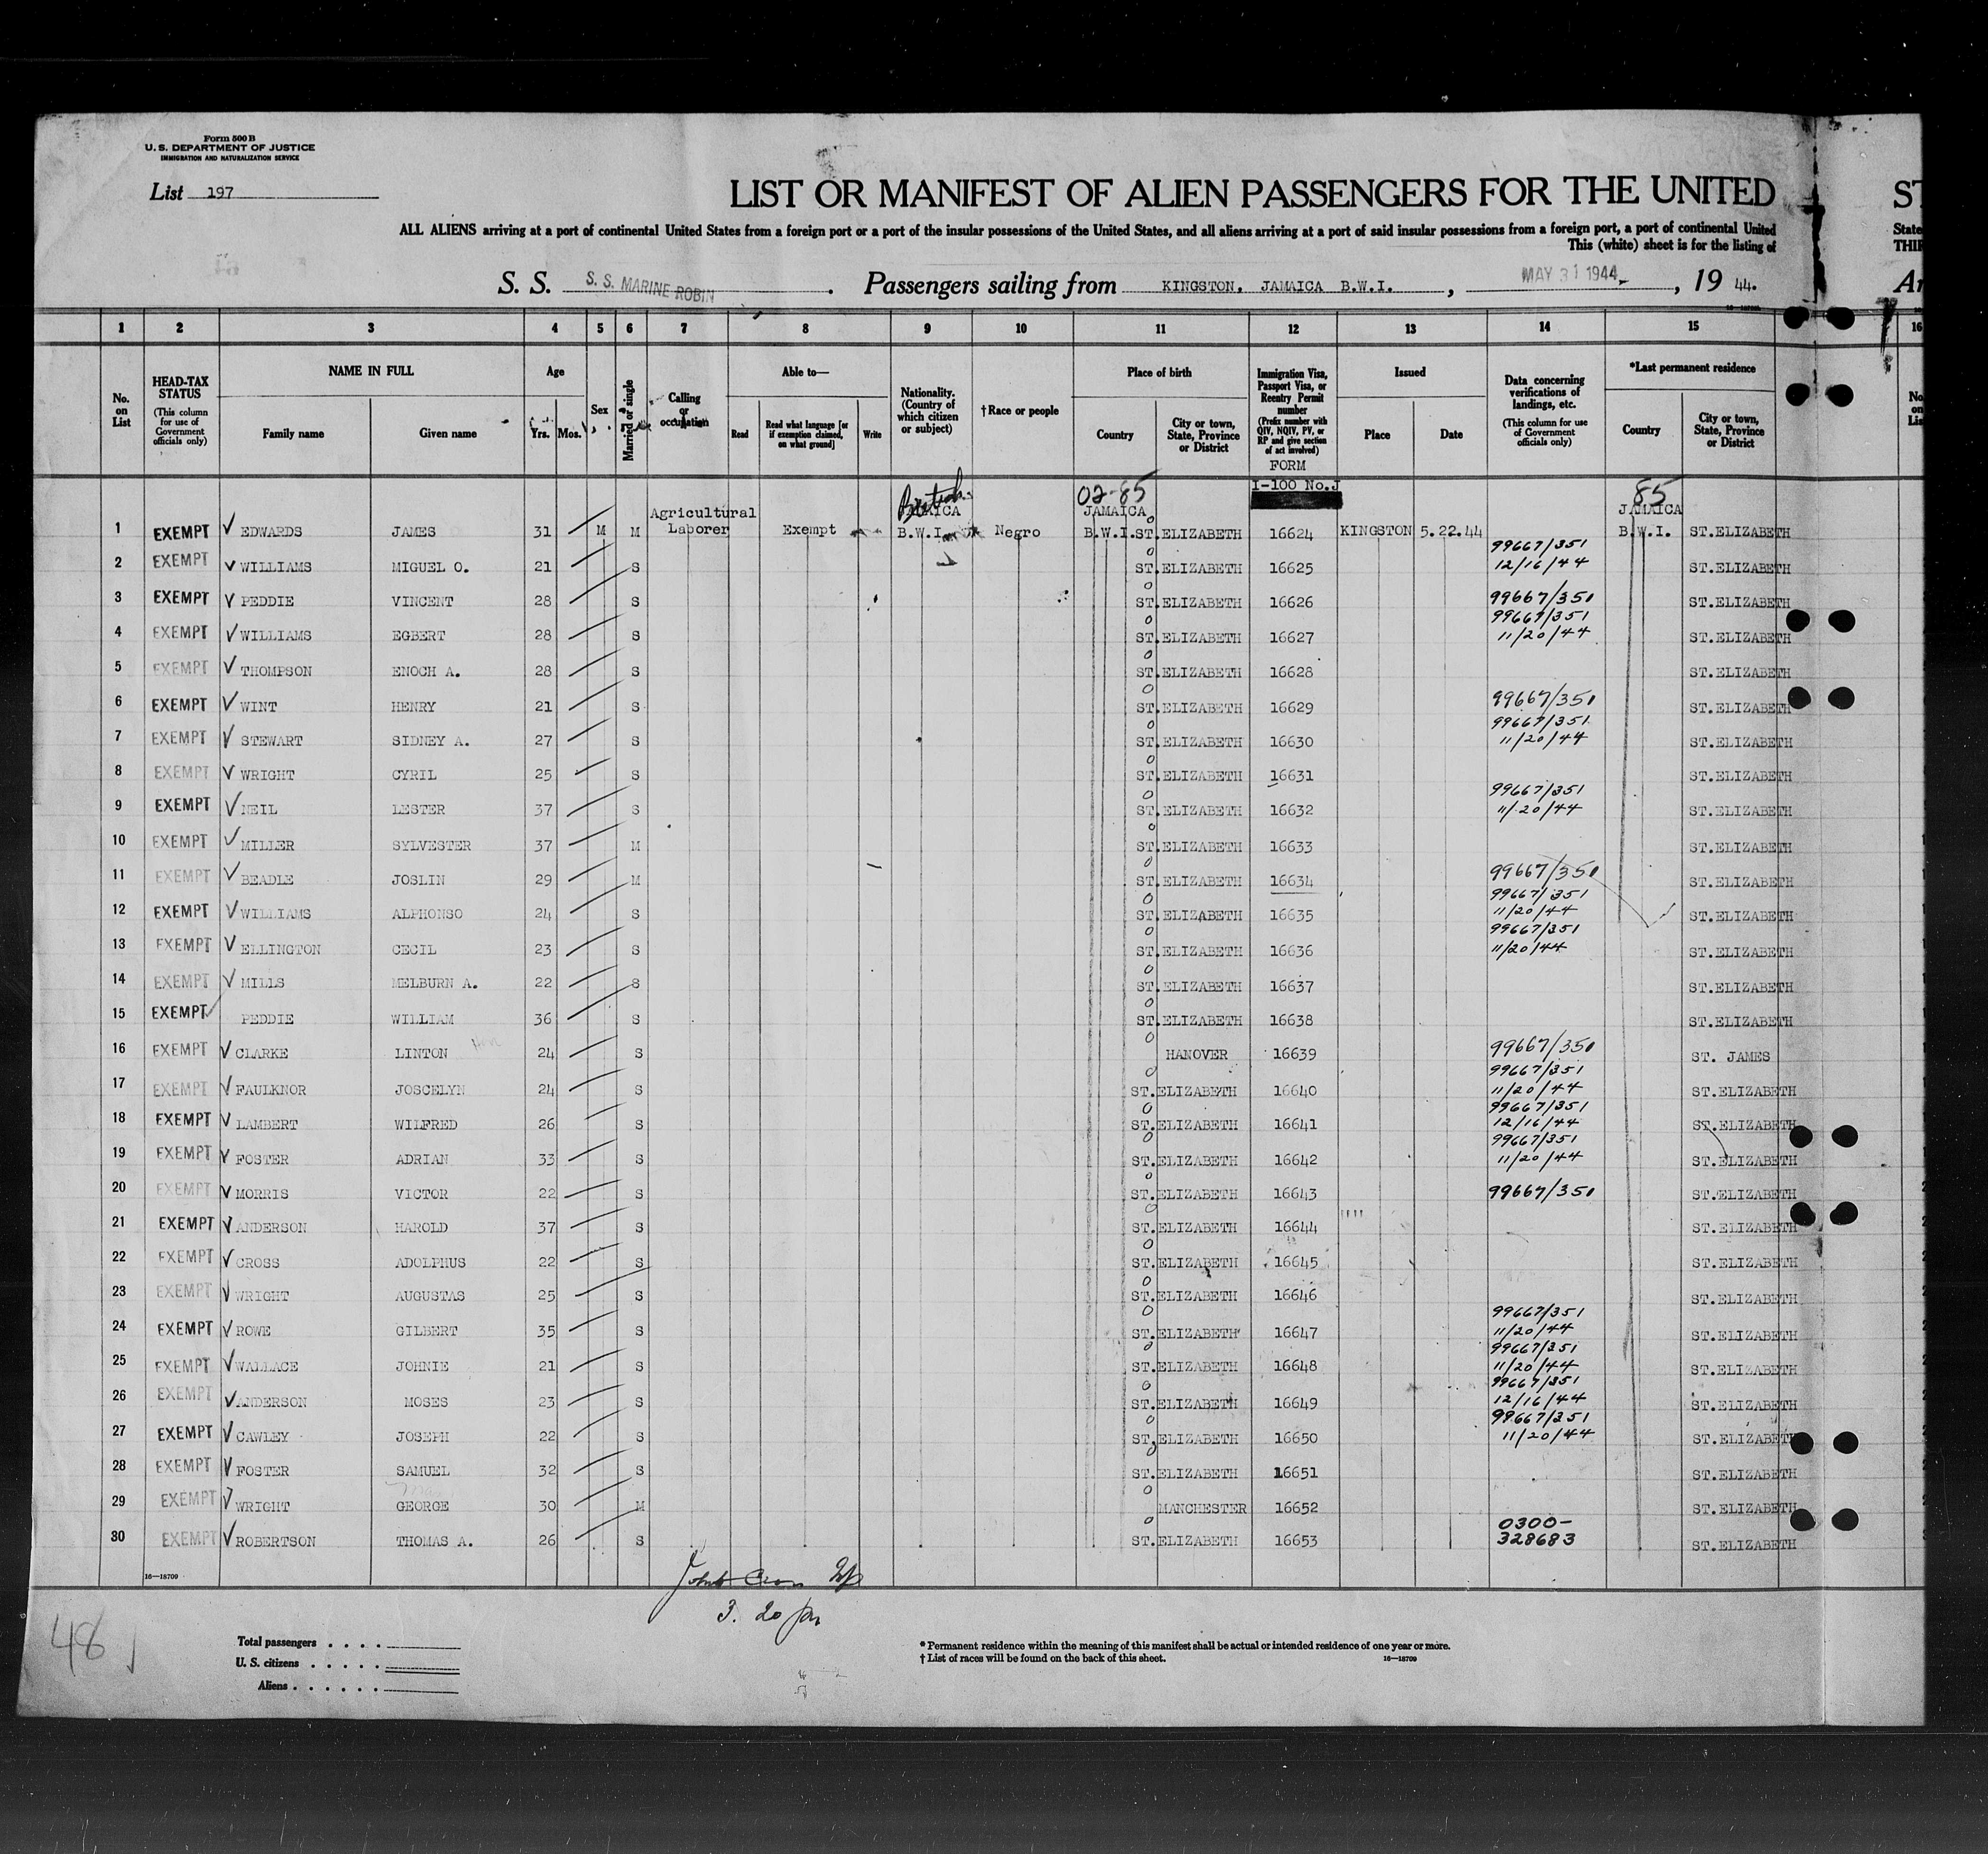 Form 500 B
U. S. DEPARTMENT OF JUSTICE
IMMIGRATION AND NATURALIZATION SERVICE
List 197
LIST OR MANIFEST OF ALIEN PASSENGERS FOR THE UNITED ST
ALL ALIENS arriving at a port of continental United States from a foreign port or a port of the insular possessions of the United States, and all aliens arriving at a port of said insular possessions from a foreign port, a port of continental United State
This (white) sheet is for the listing of THIR
S. S. S. S. MARINE ROBIN . Passengers sailing from KINGSTON, JAMAICA B.W.I. , MAY 31 1944 , 19 44. Ar
1 2 3 4 5 6 7 8 9 10 11 12 13 14 15 16
No. on List
HEAD-TAX STATUS (This column for use of Government officials only)
NAME IN FULL Family name Given name
Age Yrs. Mos.
Sex
Married or single
Calling or occupation
Able to— Read Read what language [or if exemption claimed, on what ground] Write
Nationality. (Country of which citizen or subject)
†Race or people
Place of birth Country City or town, State, Province or District
Immigration Visa, Passport Visa, or Reentry Permit number (Prefix number with QIV, NQIV, PV, or RP and give section of act involved)
FORM I-100 No.J
Issued Place Date
Data concerning verifications of landings, etc. (This column for use of Government officials only)
*Last permanent residence Country City or town, State, Province or District
No. on Lis
British 02-85 85
Agricultural JAMAICA JAMAICA JAMAICA
1 EXEMPT EDWARDS JAMES 31 M M Laborer Exempt B.W.I. Negro B.W.I. ST.ELIZABETH 16624 KINGSTON 5.22.44 B.W.I. ST.ELIZABETH
2 EXEMPT WILLIAMS MIGUEL O. 21 S ST.ELIZABETH 16625 99667/351 12/16/44 ST.ELIZABETH
3 EXEMPT PEDDIE VINCENT 28 S ST.ELIZABETH 16626 99667/350 ST.ELIZABETH
4 EXEMPT WILLIAMS EGBERT 28 S ST.ELIZABETH 16627 99667/351 11/20/44 ST.ELIZABETH
5 EXEMPT THOMPSON ENOCH A. 28 S ST.ELIZABETH 16628 ST.ELIZABETH
6 EXEMPT WINT HENRY 21 S ST.ELIZABETH 16629 99667/350 ST.ELIZABETH
7 EXEMPT STEWART SIDNEY A. 27 S ST.ELIZABETH 16630 99667/351 11/20/44 ST.ELIZABETH
8 EXEMPT WRIGHT CYRIL 25 S ST.ELIZABETH 16631 ST.ELIZABETH
9 EXEMPT NEIL LESTER 37 S ST.ELIZABETH 16632 99667/351 11/20/44 ST.ELIZABETH
10 EXEMPT MILLER SYLVESTER 37 M ST.ELIZABETH 16633 ST.ELIZABETH
11 EXEMPT BEADLE JOSLIN 29 M ST.ELIZABETH 16634 99667/350 ST.ELIZABETH
12 EXEMPT WILLIAMS ALPHONSO 24 S ST.ELIZABETH 16635 99667/351 11/20/44 ST.ELIZABETH
13 EXEMPT ELLINGTON CECIL 23 S ST.ELIZABETH 16636 99667/351 11/20/44 ST.ELIZABETH
14 EXEMPT MILLS MELBURN A. 22 S ST.ELIZABETH 16637 ST.ELIZABETH
15 EXEMPT PEDDIE WILLIAM 36 S ST.ELIZABETH 16638 ST.ELIZABETH
16 EXEMPT CLARKE LINTON 24 S HANOVER 16639 99667/350 ST. JAMES
17 EXEMPT FAULKNOR JOSCELYN 24 S ST.ELIZABETH 16640 99667/351 11/20/44 ST.ELIZABETH
18 EXEMPT LAMBERT WILFRED 26 S ST.ELIZABETH 16641 99667/351 12/16/44 ST.ELIZABETH
19 EXEMPT FOSTER ADRIAN 33 S ST.ELIZABETH 16642 99667/351 11/20/44 ST.ELIZABETH
20 EXEMPT MORRIS VICTOR 22 S ST.ELIZABETH 16643 99667/350 ST.ELIZABETH
21 EXEMPT ANDERSON HAROLD 37 S ST.ELIZABETH 16644 ST.ELIZABETH
22 EXEMPT CROSS ADOLPHUS 22 S ST.ELIZABETH 16645 ST.ELIZABETH
23 EXEMPT WRIGHT AUGUSTAS 25 S ST.ELIZABETH 16646 ST.ELIZABETH
24 EXEMPT ROWE GILBERT 35 S ST.ELIZABETH 16647 99667/351 11/20/44 ST.ELIZABETH
25 EXEMPT WALLACE JOHNIE 21 S ST.ELIZABETH 16648 99667/351 11/20/44 ST.ELIZABETH
26 EXEMPT ANDERSON MOSES 23 S ST.ELIZABETH 16649 99667/351 12/16/44 ST.ELIZABETH
27 EXEMPT CAWLEY JOSEPH 22 S ST.ELIZABETH 16650 99667/351 11/20/44 ST.ELIZABETH
28 EXEMPT FOSTER SAMUEL 32 S ST.ELIZABETH 16651 ST.ELIZABETH
29 EXEMPT WRIGHT GEORGE 30 M MANCHESTER 16652 ST.ELIZABETH
30 EXEMPT ROBERTSON THOMAS A. 26 S ST.ELIZABETH 16653 0300-328683 ST.ELIZABETH
16—18709
3. 20 pm
48
Total passengers . . . .
U. S. citizens . . . . .
Aliens . . . . . .
* Permanent residence within the meaning of this manifest shall be actual or intended residence of one year or more.
† List of races will be found on the back of this sheet. 16—18709